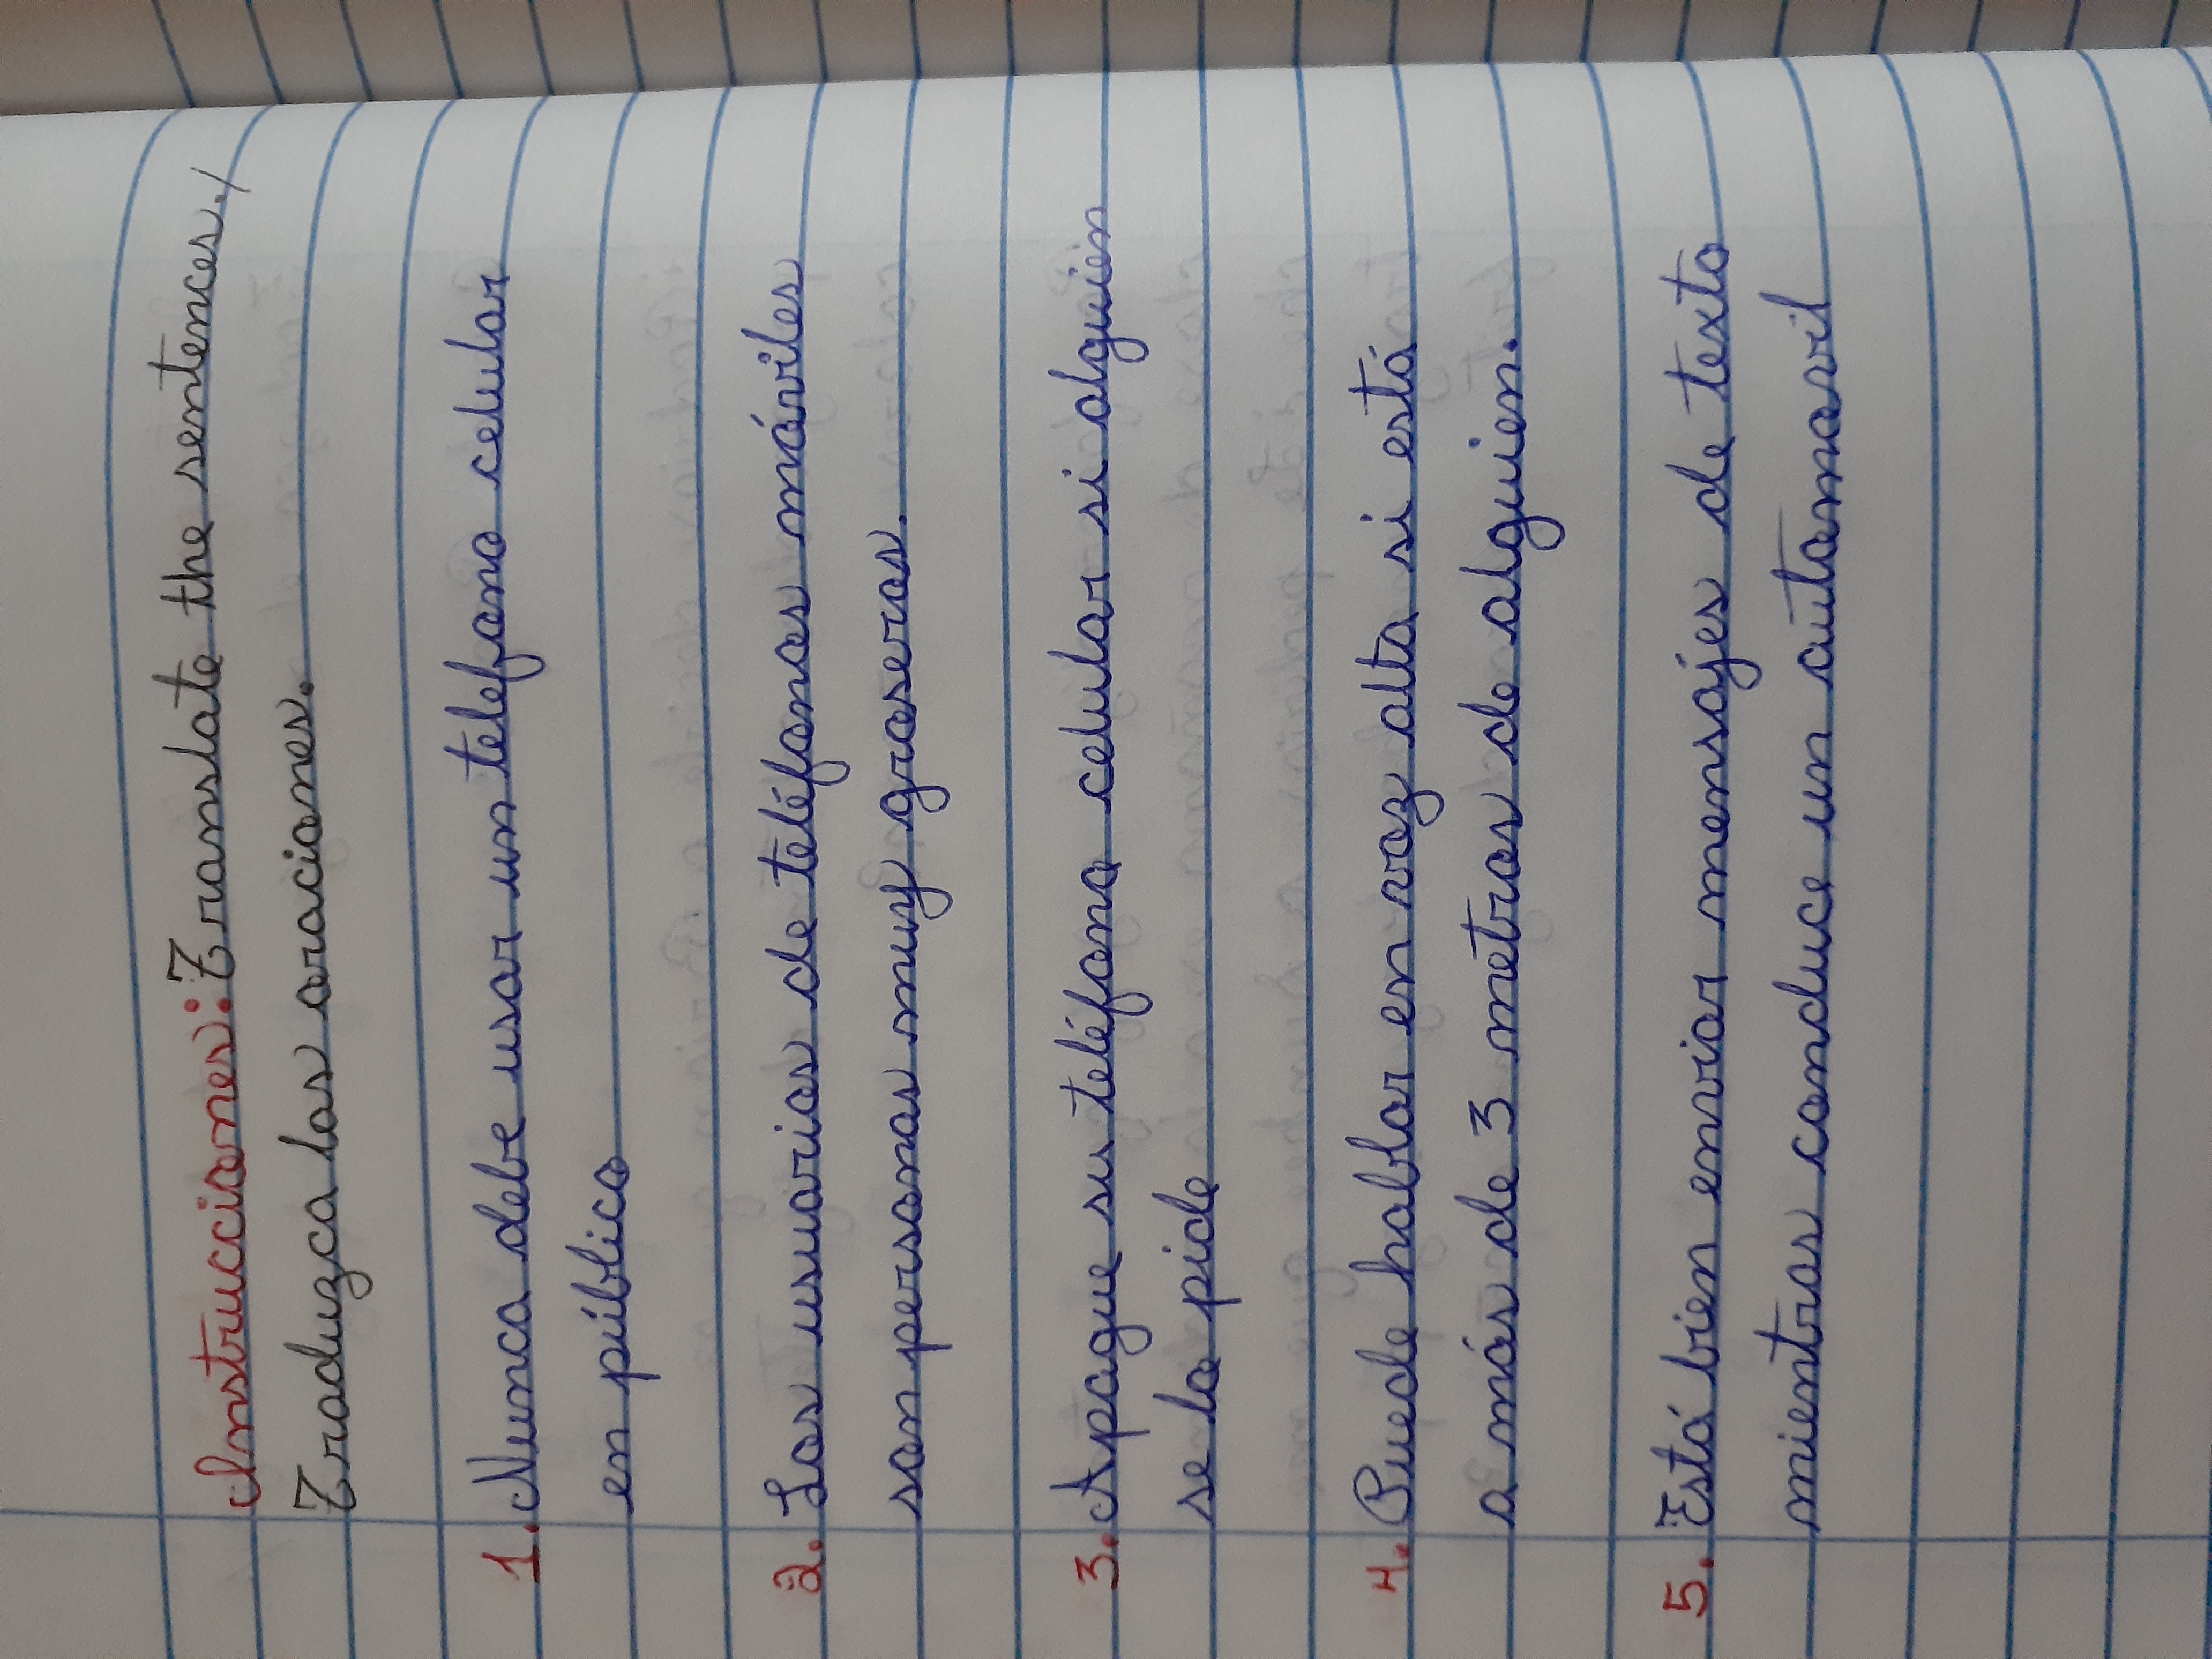 Instrucciones: Translate the sentences./
Traduzca las oraciones.
1. Nunca debe usar un telefono celular
en público
2. Los usuarios de teléfonos móviles
son personas muy groseras.
3. Apague su teléfono celular si alguien
se lo pide
4. Puede hablar en voz alta si está
a más de 3 metros de alguien.
5. Está bien enviar mensajes de texto
mientras conduce un automovil